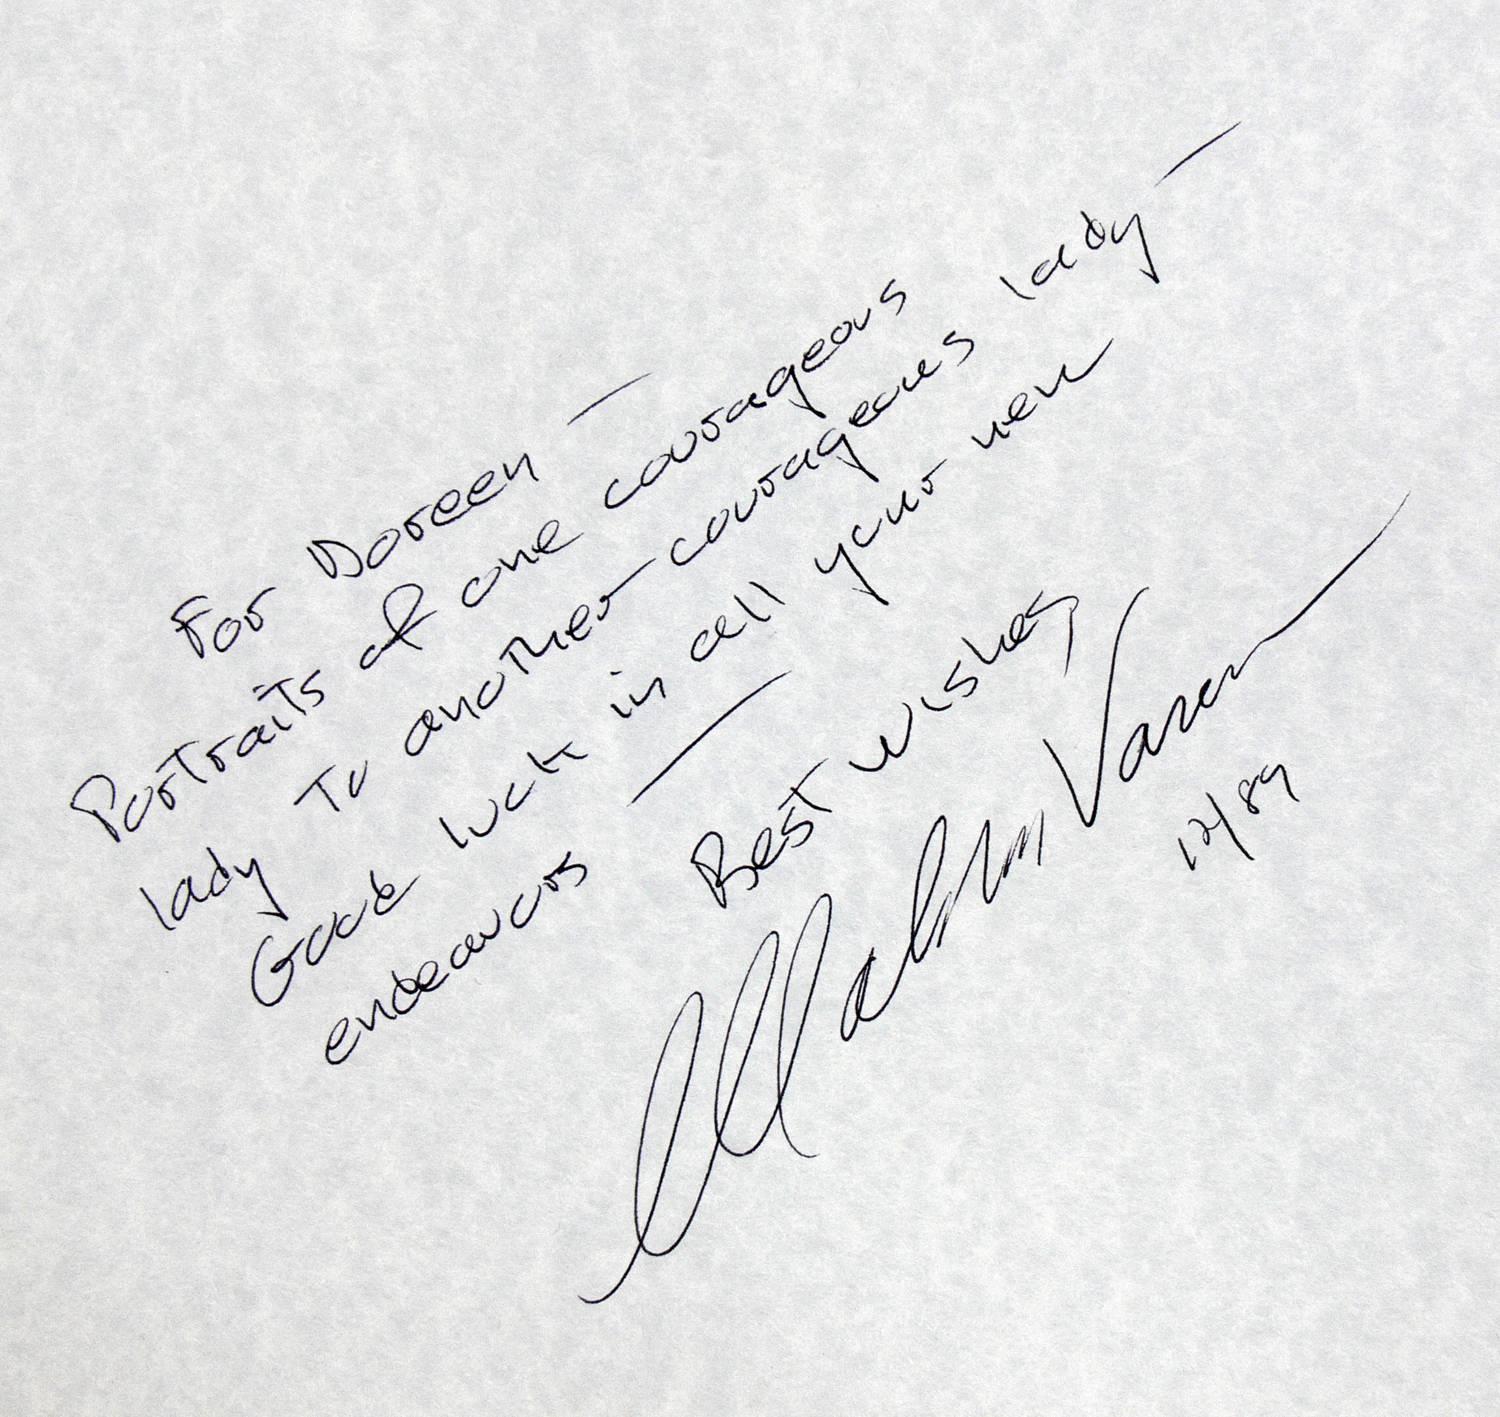 For Doreen —
Portraits of one courageous
lady to another courageous lady —
Good luck in all your new
endeavors —
Best wishes
Malcolm Varon
12/89